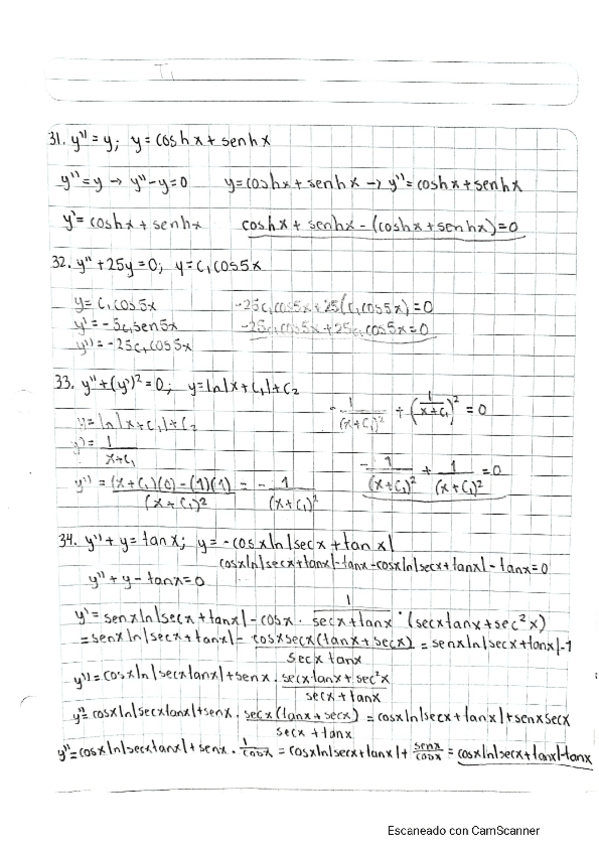 31. y'' = y; y = cosh x + senh x
y'' = y → y'' - y = 0   y = cosh x + senh x → y'' = cosh x + senh x
y' = cosh x + senh x   cosh x + senh x - (cosh x + senh x) = 0
32. y'' + 25y = 0; y = c₁cos5x
y = c₁cos5x   -25c₁cos5x + 25(c₁cos5x) = 0
y' = -5c₁sen5x   -25c₁cos5x + 25c₁cos5x = 0
y'' = -25c₁cos5x
33. y'' + (y')² = 0; y = ln|x + c₁| + c₂
-1/(x+c₁)² + (1/(x+c₁))² = 0
y = ln|x + c₁| + c₂
y' = 1/(x+c₁)
-1/(x+c₁)² + 1/(x+c₁)² = 0
y'' = ((x+c₁)(0) - (1)(1))/(x+c₁)² = -1/(x+c₁)²
34. y'' + y = tan x; y = -cosx ln|secx + tan x|
cosxln|secx+tanx|-tanx-cosxln|secx+tanx|-tanx=0
y'' + y - tanx = 0
y' = senx ln|secx + tanx| - cosx · 1/(secx+tanx) · (secxtanx + sec²x)
= senx ln|secx + tanx| - cosxsecx(tanx + secx)/(secx tanx) = senx ln|secx + tanx| - 1
y'' = cosx ln|secxtanx| + senx · (secxtanx + sec²x)/(secx + tanx)
y'' = cosx ln|secxtanx| + senx · secx(tanx + secx)/(secx + tanx) = cosx ln|secx + tanx| + senxsecx
y'' = cosx ln|secxtanx| + senx · 1/cosx = cosx ln|secx + tanx| + senx/cosx = cosx ln|secx + tanx| - tanx
Escaneado con CamScanner